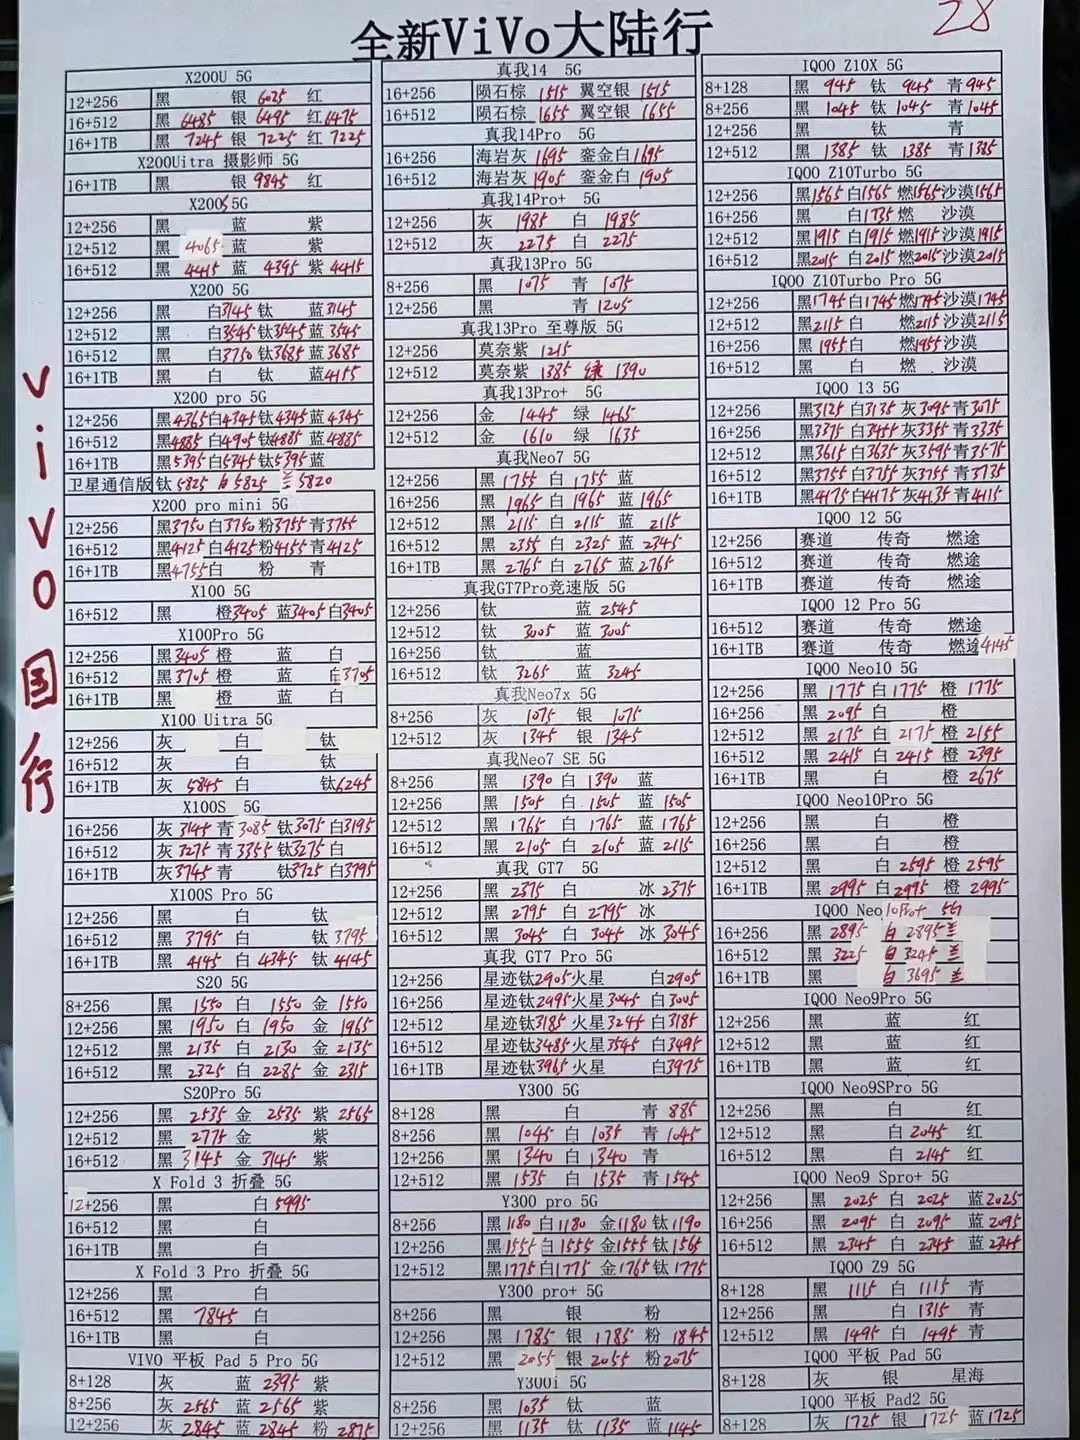 全新ViVo大陆行
28
ViVO国行
X200U 5G
12+256 黑 银 6025 红
16+512 黑 6485 银 6495 红 6475
16+1TB 黑 7245 银 7225 红 7225
X200Uitra 摄影师 5G
16+1TB 黑 银 9845 红
X200S 5G
12+256 黑 蓝 紫
12+512 黑 4065 蓝 紫
16+512 黑 4415 蓝 4395 紫 4415
X200 5G
12+256 黑 白3145 钛 蓝3145
12+512 黑 白3545 钛3545 蓝3545
16+512 黑 白3750 钛3685 蓝3685
16+1TB 黑 白 钛 蓝4155
X200 pro 5G
12+256 黑4365 白4345 钛4345 蓝4345
16+512 黑4885 白4905 钛4885 蓝4885
16+1TB 黑5395 白5345 钛5395 蓝
卫星通信版 钛 5825 白 5825 兰 5820
X200 pro mini 5G
12+256 黑3750 白3750 粉3755 青3755
16+512 黑4125 白4125 粉4155 青4125
16+1TB 黑4755 白 粉 青
X100 5G
16+512 黑 橙3405 蓝3405 白3405
X100Pro 5G
12+256 黑3405 橙 蓝 白
16+512 黑3705 橙 蓝 白3705
16+1TB 黑 橙 蓝 白
X100 Uitra 5G
12+256 灰 白 钛
16+512 灰 白 钛
16+1TB 灰 5845 白 钛6245
X100S 5G
16+256 灰 3145 青 3085 钛 3075 白3195
16+512 灰 3275 青 3355 钛3275 白
16+1TB 灰3745 青 钛3725 白3795
X100S Pro 5G
12+256 黑 白 钛
16+512 黑 3795 白 钛 3795
16+1TB 黑 4145 白 4345 钛 4145
S20 5G
8+256 黑 1550 白 1550 金 1550
12+256 黑 1950 白 1950 金 1965
12+512 黑 2135 白 2130 金 2135
16+512 黑 2325 白 2285 金 2315
S20Pro 5G
12+256 黑 2535 金 2535 紫 2565
12+512 黑 2775 金 紫
16+512 黑 3145 金 3145 紫
X Fold 3 折叠 5G
12+256 黑 白 5995
16+512 黑 白
16+1TB 黑 白
X Fold 3 Pro 折叠 5G
12+256 黑 白
16+512 黑 7845 白
16+1TB 黑 白
VIVO 平板 Pad 5 Pro 5G
8+128 灰 蓝 2395 紫
8+256 灰 2565 蓝 2565 紫
12+256 灰 2845 蓝 2845 粉 2875
真我14 5G
16+256 陨石棕 1515 翼空银 1515
16+512 陨石棕 1655 翼空银 1655
真我14Pro 5G
16+256 海岩灰 1695 銮金白 1695
16+512 海岩灰 1905 銮金白 1905
真我14Pro+ 5G
12+256 灰 1985 白 1985
12+512 灰 2275 白 2275
真我13Pro 5G
8+256 黑 1075 青 1075
12+256 黑 青 1205
真我13Pro 至尊版 5G
12+256 莫奈紫 1215
12+512 莫奈紫 1385 绿 1390
真我13Pro+ 5G
12+256 金 1445 绿 1465
12+512 金 1610 绿 1635
真我Neo7 5G
12+256 黑 1755 白 1755 蓝
16+256 黑 1965 白 1965 蓝 1965
12+512 黑 2115 白 2115 蓝 2115
16+512 黑 2355 白 2325 蓝 2345
16+1TB 黑 2765 白 2765 蓝 2765
真我GT7Pro竞速版 5G
12+256 钛 蓝 2545
12+512 钛 3005 蓝 3005
16+256 钛 蓝
16+512 钛 3265 蓝 3245
真我Neo7x 5G
8+256 灰 1075 银 1075
12+512 灰 1345 银 1345
真我Neo7 SE 5G
8+256 黑 1390 白 1390 蓝
12+256 黑 1505 白 1505 蓝 1505
12+512 黑 1765 白 1765 蓝 1765
16+512 黑 2105 白 2105 蓝 2115
真我 GT7 5G
12+256 黑 2375 白 冰 2375
12+512 黑 2795 白 2795 冰
16+512 黑 3045 白 3045 冰 3045
真我 GT7 Pro 5G
12+256 星迹钛2905 火星 白2905
16+256 星迹钛2995 火星3045 白3005
12+512 星迹钛3185 火星3245 白3185
16+512 星迹钛3485 火星3545 白3495
16+1TB 星迹钛3965 火星 白3975
Y300 5G
8+128 黑 白 青 885
8+256 黑 1045 白 1035 青 1045
12+256 黑 1340 白 1340 青
12+512 黑 1535 白 1535 青 1545
Y300 pro 5G
8+256 黑1180 白1180 金1180 钛1190
12+256 黑1555 白1555 金1555 钛1565
12+512 黑1775 白1775 金1765 钛 1775
Y300 pro+ 5G
8+256 黑 银 粉
12+256 黑 1785 银 1785 粉 1845
12+512 黑 2055 银 2055 粉 2075
Y300i 5G
8+256 黑 1035 钛 蓝
12+256 黑 1135 钛 1135 蓝 1145
IQOO Z10X 5G
8+128 黑 945 钛 945 青945
8+256 黑 1045 钛 1045 青1045
12+256 黑 钛 青
12+512 黑 1385 钛 1385 青 1385
IQOO Z10Turbo 5G
12+256 黑1565 白1565 燃1565 沙漠1565
16+256 黑 白1735 燃 沙漠
12+512 黑1915 白1915 燃1915 沙漠1915
16+512 黑2015 白2015 燃2015 沙漠2015
IQOO Z10Turbo Pro 5G
12+256 黑1745 白1745 燃1745 沙漠1745
12+512 黑2115 白 燃2115 沙漠2115
16+256 黑1955 白 燃1955 沙漠
16+512 黑 白 燃 沙漠
IQOO 13 5G
12+256 黑3125 白3135 灰3095 青3075
16+256 黑3375 白3455 灰3355 青3335
12+512 黑3615 白3635 灰3595 青3575
16+512 黑3755 白3755 灰3755 青3735
16+1TB 黑4175 白4175 灰4135 青4115
IQOO 12 5G
12+256 赛道 传奇 燃途
16+512 赛道 传奇 燃途
16+1TB 赛道 传奇 燃途
IQOO 12 Pro 5G
16+512 赛道 传奇 燃途
16+1TB 赛道 传奇 燃途4145
IQOO Neo10 5G
12+256 黑 1775 白 1775 橙 1775
16+256 黑 2095 白 橙
12+512 黑 2175 白 2175 橙 2155
16+512 黑 2415 白 2415 橙 2395
16+1TB 黑 白 橙 2675
IQOO Neo10Pro 5G
12+256 黑 白 橙
16+256 黑 白 橙
12+512 黑 白 2595 橙 2595
16+1TB 黑 2995 白 2995 橙 2995
IQOO Neo10Pro+ 5G
16+256 黑 2895 白 2895 兰
16+512 黑 3225 白 3245 兰
16+1TB 黑 白 3695 兰
IQOO Neo9Pro 5G
12+256 黑 蓝 红
16+512 黑 蓝 红
16+1TB 黑 蓝 红
IQOO Neo9SPro 5G
12+256 黑 白 红
12+512 黑 白 2045 红
16+512 黑 白 2145 红
IQOO Neo9 Spro+ 5G
12+256 黑 2025 白 2025 蓝2025
16+256 黑 2095 白 2095 蓝2095
16+512 黑 2345 白 2345 蓝2345
IQOO Z9 5G
8+128 黑 1115 白 1115 青
12+256 黑 白 1315 青
12+512 黑 1495 白 1495 青
IQOO 平板 Pad 5G
8+128 灰 银 星海
IQOO 平板 Pad2 5G
8+128 灰 1725 银 1725 蓝1725